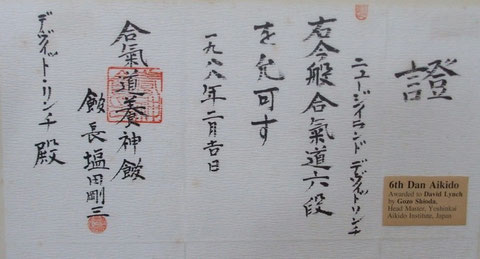 證
ニュージイランド デヴィット・リンチ
右今般合氣道六段
を允可す
一九八八年二月吉日
合氣道養神館
館長塩田剛三
デヴィット・リンチ殿
6th Dan Aikido
Awarded to David Lynch
by Gozo Shioda,
Head Master, Yoshinkai
Aikido Institute, Japan